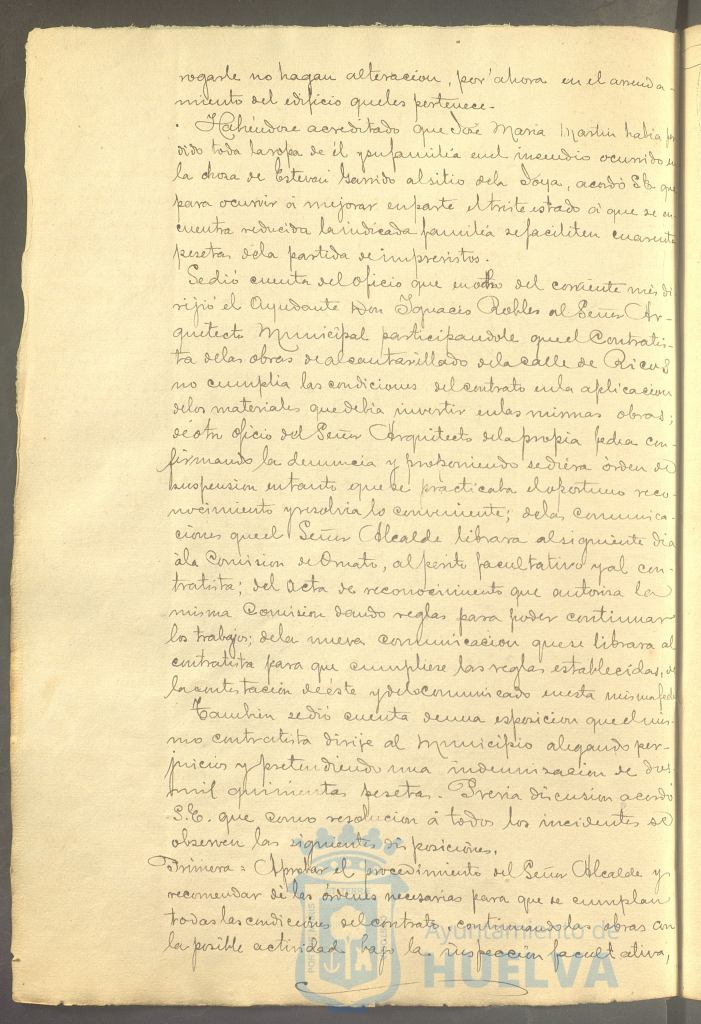 rogarle no hagan alteracion, por ahora en el arrenda-
miento del edificio que les pertenece.
Habiéndose acreditado que José Maria Martin habia per
dido toda la ropa de él y su familia en el incendio ocurrido en
la choza de Estevan Garrido al sitio de la Joya, acordó S.E. que
para ocurrir á mejorar en parte el triste estado á que se en
cuentra reducida la indicada familia se faciliten cuarenta
pesetas de la partida de imprevistos.
Se dió cuenta del oficio que en ocho del corriente mes di
rijió el Ayudante Don Ignacio Robles al Señor Ar-
quitecto Municipal participandole que el Contratis-
ta de las obras de alcantarillado de la calle de Ricos
no cumplia las condiciones del contrato en la aplicacion
de los materiales que debia invertir en las mismas obras;
de otro oficio del Señor Arquitecto de la propia fecha con-
firmando la denuncia y proponiendo se diera órden de
suspension en tanto que se practicaba el oportuno reco-
nocimiento y resolvia lo conveniente; de las comunica-
ciones que el Señor Alcalde librara al siguiente dia
á la Comision de Ornato, al perito facultativo y al con-
tratista; del acta de reconocimiento que autoriza la
misma Comision dando reglas para poder continuar
los trabajos; de la nueva comunicacion que se librara al
contratista para que cumpliese las reglas establecidas, de
la contestación de éste y de lo comunicado en esta misma fecha
Tambien se dió cuenta de una esposicion que el mis-
mo contratista dirije al Municipio alegando per-
juicios y pretendiendo una indemnizacion de dos
mil quinientas pesetas. Previa discusion acordó
S.E. que como resolucion á todos los incidentes se
observen las siguientes disposiciones.
Primera = Aprobar el procedimiento del Señor Alcalde y
recomendar dé las órdenes necesarias para que se cumplan
todas las condiciones del contrato, continuando las obras con
la posible actividad bajo la inspección facultativa,
Ayuntamiento de
HUELVA